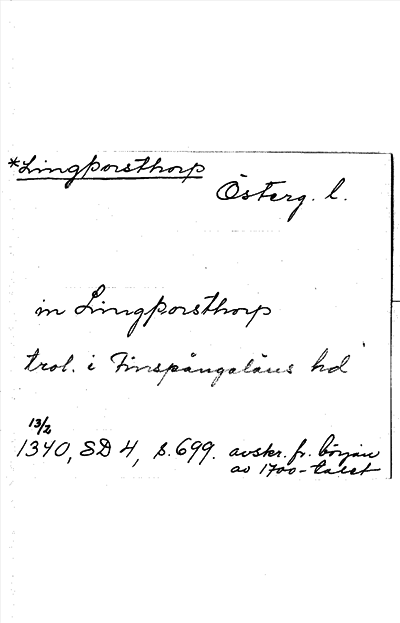 *Lingþorsthorp
Österg. l.
in Lingþorsthorp
trol. i Finspångaläns hd
13/2
1340, SD 4, s. 699. avskr. fr. början
av 1700-talet